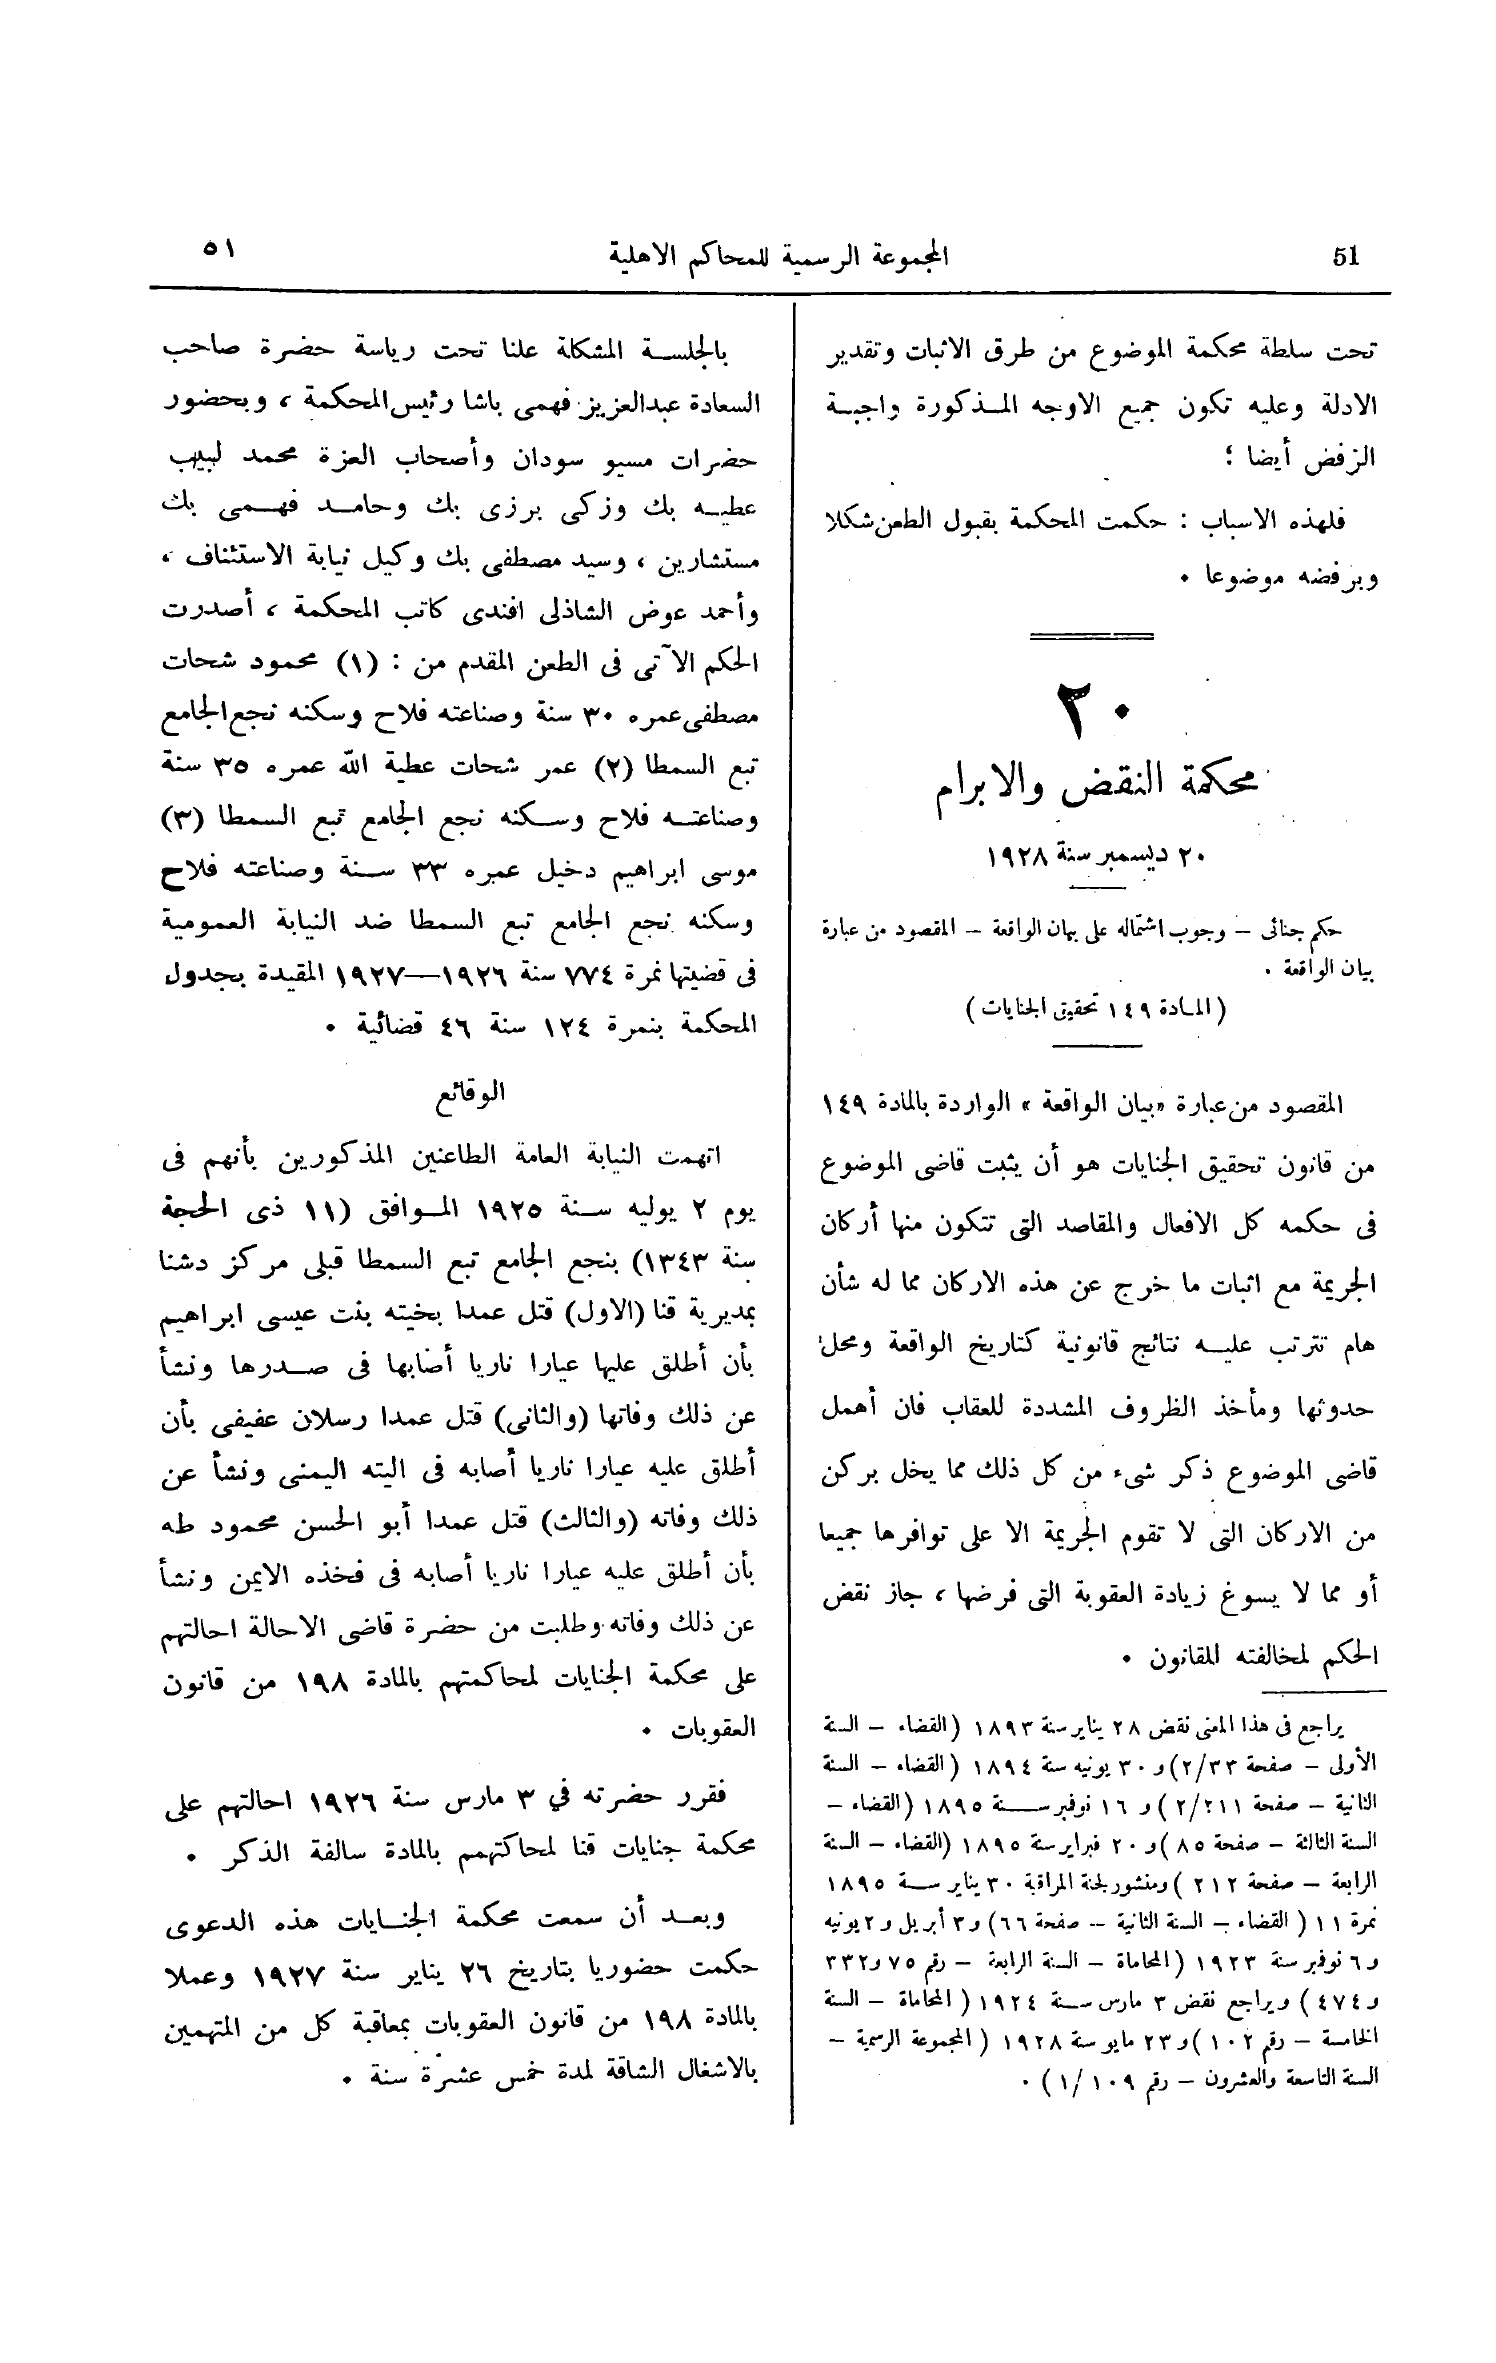 51
المجموعة الرسمية للمحاكم الاهلية
٥١
تحت سلطة محكمة الموضوع من طرق الاثبات وتقدير
الادلة وعليه تكون جميع الاوجه المذكورة واجبة
الرفض أيضا ؛
فلهذه الاسباب : حكمت المحكمة بقبول الطعن شكلا
وبرفضه موضوعا .
٢٠
محكمة النقض والابرام
٢٠ ديسمبر سنة ١٩٢٨
حكم جنائى – وجوب اشتماله على بيان الواقعة – المقصود من عبارة
بيان الواقعة .
(المادة ١٤٩ تحقيق الجنايات)
المقصود من عبارة «بيان الواقعة» الواردة بالمادة ١٤٩
من قانون تحقيق الجنايات هو أن يثبت قاضى الموضوع
فى حكمه كل الافعال والمقاصد التى تتكون منها أركان
الجريمة مع اثبات ما خرج عن هذه الاركان مما له شأن
هام تترتب عليه نتائج قانونية كتاريخ الواقعة ومحل
حدوثها ومأخذ الظروف المشددة للعقاب فان أهمل
قاضى الموضوع ذكر شىء من كل ذلك مما يخل بركن
من الاركان التى لا تقوم الجريمة الا على توافرها جميعا
أو مما لا يسوغ زيادة العقوبة التى فرضها ، جاز نقض
الحكم لمخالفته للقانون .
يراجع فى هذا المعنى نقض ٢٨ يناير سنة ١٨٩٣ (القضاء – السنة
الأولى – صفحة ٢/٣٣) و ٣٠ يونيه سنة ١٨٩٤ (القضاء – السنة
الثانية – صفحة ٢/٢١١) و ١٦ نوفمبر سنة ١٨٩٥ (القضاء –
السنة الثالثة – صفحة ٨٥) و ٢٠ فبراير سنة ١٨٩٥ (القضاء – السنة
الرابعة – صفحة ٢١٢) ومنشور لجنة المراقبة ٣٠ يناير سنة ١٨٩٥
نمرة ١١ (القضاء – السنة الثانية – صفحة ٦٦) و٣ أبريل و٢ يونيه
و٦ نوفمبر سنة ١٩٢٣ (المحاماة – السنة الرابعة – رقم ٧٥ و٣٣٢
و٤٧٤) ويراجع نقض ٣ مارس سنة ١٩٢٤ (المحاماة – السنة
الخامسة – رقم ١٠٢) و٢٣ مايو سنة ١٩٢٨ (المجموعة الرسمية –
السنة التاسعة والعشرون – رقم ١/١٠٩) .
بالجلسة المشكلة علنا تحت رياسة حضرة صاحب
السعادة عبدالعزيز فهمى باشا رئيس المحكمة ، وبحضور
حضرات مسيو سودان وأصحاب العزة محمد لبيب
عطيه بك وزكى برزى بك وحامد فهمى بك
مستشارين ، وسيد مصطفى بك وكيل نيابة الاستئناف ،
وأحمد عوض الشاذلى افندى كاتب المحكمة ، أصدرت
الحكم الآتى فى الطعن المقدم من : (١) محمود شحات
مصطفى عمره ٣٠ سنة وصناعته فلاح وسكنه نجع الجامع
تبع السمطا (٢) عمر شحات عطية الله عمره ٣٥ سنة
وصناعته فلاح وسكنه نجع الجامع تبع السمطا (٣)
موسى ابراهيم دخيل عمره ٣٣ سنة وصناعته فلاح
وسكنه نجع الجامع تبع السمطا ضد النيابة العمومية
فى قضيتها نمرة ٧٧٤ سنة ١٩٢٦—١٩٢٧ المقيدة بجدول
المحكمة بنمرة ١٢٤ سنة ٤٦ قضائية .
الوقائع
اتهمت النيابة العامة الطاعنين المذكورين بأنهم فى
يوم ٢ يوليه سنة ١٩٢٥ الموافق (١١ ذى الحجة
سنة ١٣٤٣) بنجع الجامع تبع السمطا قبلى مركز دشنا
بمديرية قنا (الاول) قتل عمدا بخيته بنت عيسى ابراهيم
بأن أطلق عليها عيارا ناريا أضابها فى صدرها ونشأ
عن ذلك وفاتها (والثانى) قتل عمدا رسلان عفيفى بأن
أطلق عليه عيارا ناريا أصابه فى اليته اليمنى ونشأ عن
ذلك وفاته (والثالث) قتل عمدا أبو الحسن محمود طه
بأن أطلق عليه عيارا ناريا أصابه فى فخذه الايمن ونشأ
عن ذلك وفاته وطلبت من حضرة قاضى الاحالة احالتهم
على محكمة الجنايات لمحاكمتهم بالمادة ١٩٨ من قانون
العقوبات .
فقرر حضرته في ٣ مارس سنة ١٩٢٦ احالتهم على
محكمة جنايات قنا لمحاكتهمم بالمادة سالفة الذكر .
وبعد أن سمعت محكمة الجنايات هذه الدعوى
حكمت حضوريا بتاريخ ٢٦ يناير سنة ١٩٢٧ وعملا
بالمادة ١٩٨ من قانون العقوبات بمعاقبة كل من المتهمين
بالاشغال الشاقة لمدة خمس عشرة سنة .